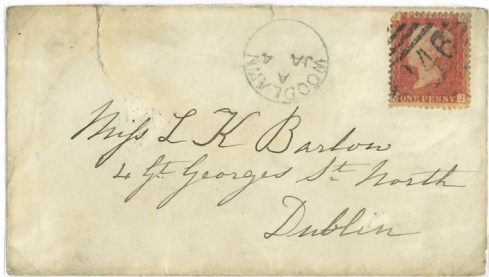 WOODLAWN
A
JA 4
146
ONE PENNY
J
Miss L K Barton
4 Gt. Georges St. North
Dublin